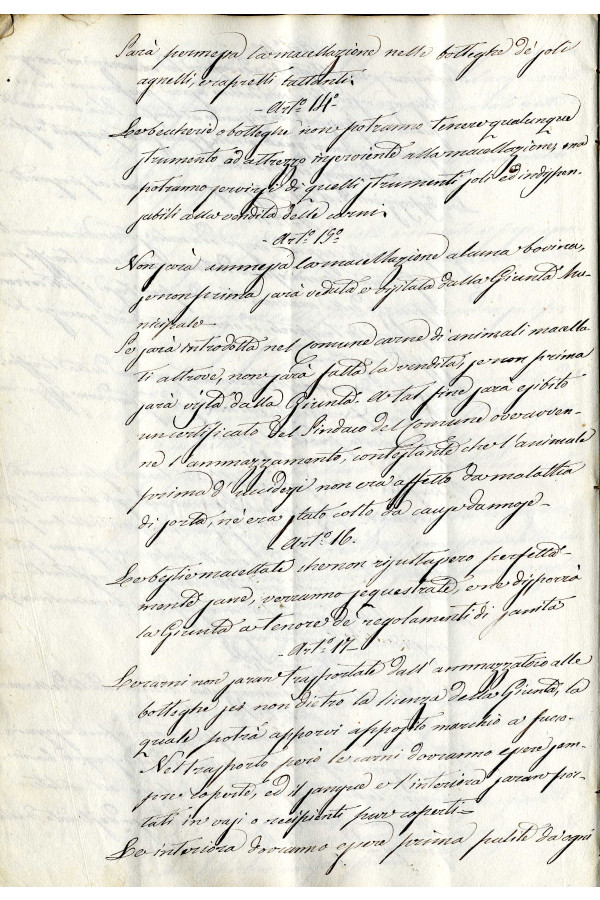 Sarà permessa la macellazione nelle botteghe de' soli
agnelli, e capretti lattanti.
- Art.º 14º
Le beccherie o botteghe non potranno tenere qualunque
strumento ad attrezzo inserviente alla macellazione, ma
potranno servirsi di quelli strumenti soli ed indispen-
sabili alla vendita delle carni.
- Art.º 15º
Non sarà ammessa la macellazione alcuna bovina,
se non prima sarà veduta e visitata dalla Giunta Mu-
nicipale
Se sarà introdotta nel Comune carne di animali macella-
ti altrove, non sarà fatta la vendita, se non prima
sarà vista dalla Giunta. A tal fine sarà esibito
un certificato del Sindaco del Comune ove avven-
ne l'ammazzamento, contestante che l'animale
prima d'uccidersi non era affetto da malattia
di sorta, nè era stato colto da cause dannose -
- Art.º 16.
Le bestie macellate che non risultassero perfetta-
mente sane, verranno sequestrate, e ne disporrà
la Giunta a tenore de' regolamenti di sanità
- Art.º 17 -
Le carni non saran trasportate dall'ammazzatoio alle
botteghe se non dietro la licenza della Giunta, la
quale potrà apporvi apposito marchio a fuoco -
Nel trasporto però le carni dovranno essere sem-
pre coperte, ed il sangue e l'interiora saran por-
tati in vasi o recipienti pure coperti =
Le interiora dovranno essere prima pulite da ogni